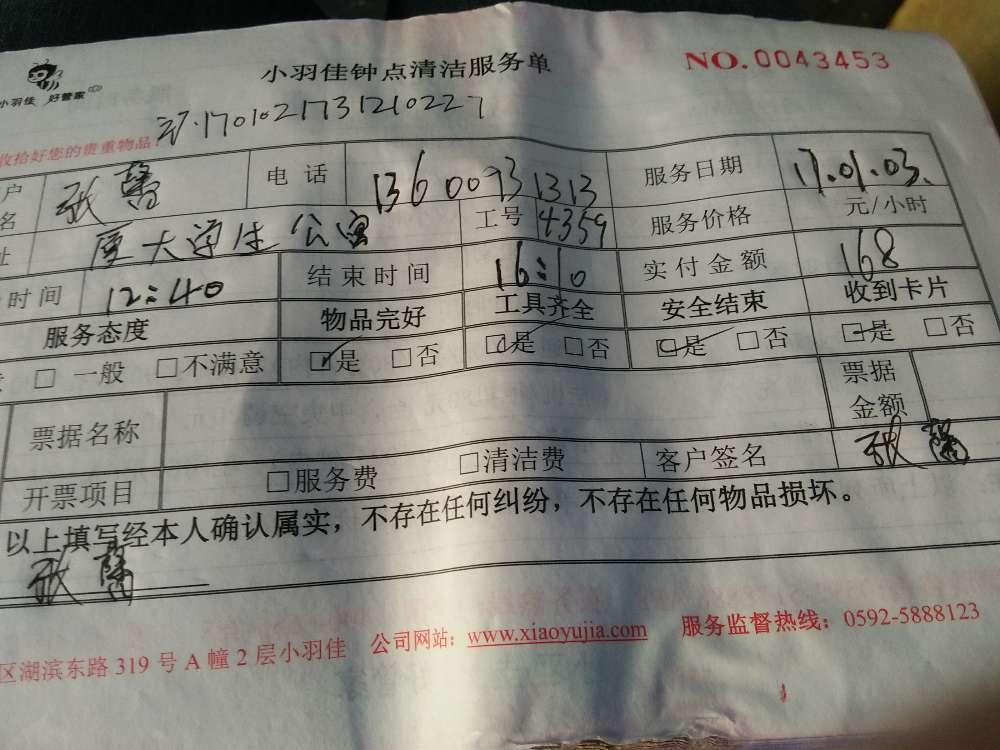 小羽佳 好管家
小羽佳钟点清洁服务单
NO. 0043453
170102173121022７
收拾好您的贵重物品
户名 张馨 电话 13600931313 服务日期 17.01.03.
址 厦大学生公寓 工号 4359 服务价格 元/小时
时间 12:40 结束时间 16:10 实付金额 168
服务态度 物品完好 工具齐全 安全结束 收到卡片
□ 一般 □不满意 ☑是 □否 ☑是 □否 ☑是 □否 ☑是 □否
票据名称 票据金额
开票项目 □服务费 □清洁费 客户签名 张馨
以上填写经本人确认属实，不存在任何纠纷，不存在任何物品损坏。
张馨
区湖滨东路 319 号 A 幢 2 层小羽佳 公司网站：www.xiaoyujia.com 服务监督热线：0592-5888123